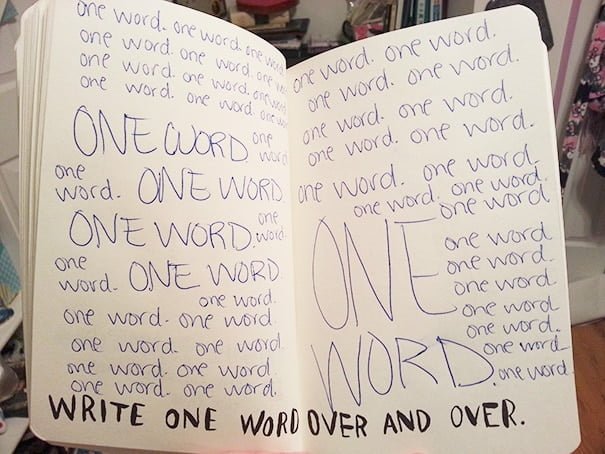 one word. one word. one word
one word. one word. one
one word. one word. one word
one word. one word. one
ONE WORD. one
word
one
word. ONE WORD
ONE WORD. one
word.
one
word. ONE WORD
one word.
one word. one word
one word. one word
one word. one word.
one word. one word.
one word. one word.
one word. one word.
one word. one word.
one word. one word.
one word. one word.
one word. one word.
one word
ONE
one word
one word.
one word.
one word
one word.
WORD.
one word
one word.
WRITE ONE WORD OVER AND OVER.